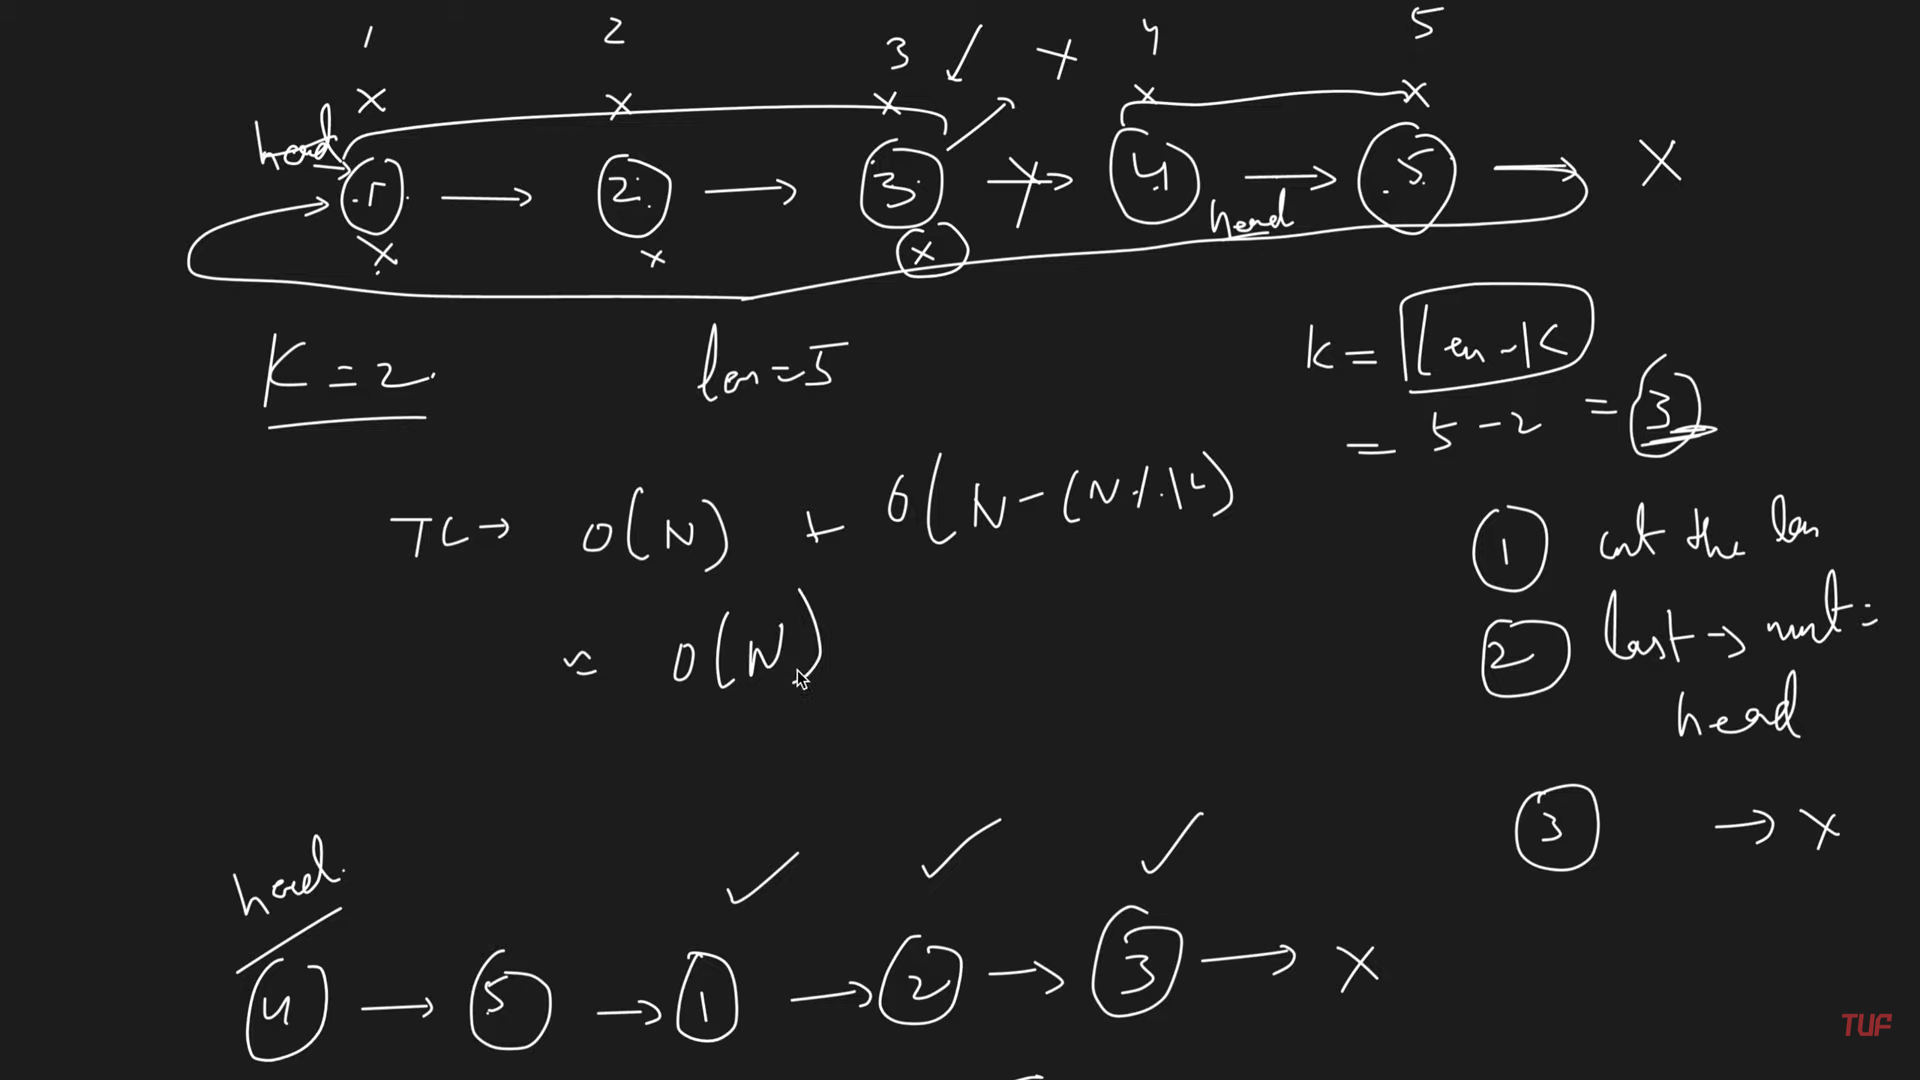 1 2 3 4 5
head
1 → 2 → 3 → 4 → 5 → X
head
K = 2
len = 5
K = len - K
= 5 - 2 = 3
TC → O(N) + O(N - (N % K)
≈ O(N)
1 cnt the len
2 last → next =
head
3 → X
head
4 → 5 → 1 → 2 → 3 → X
TUF